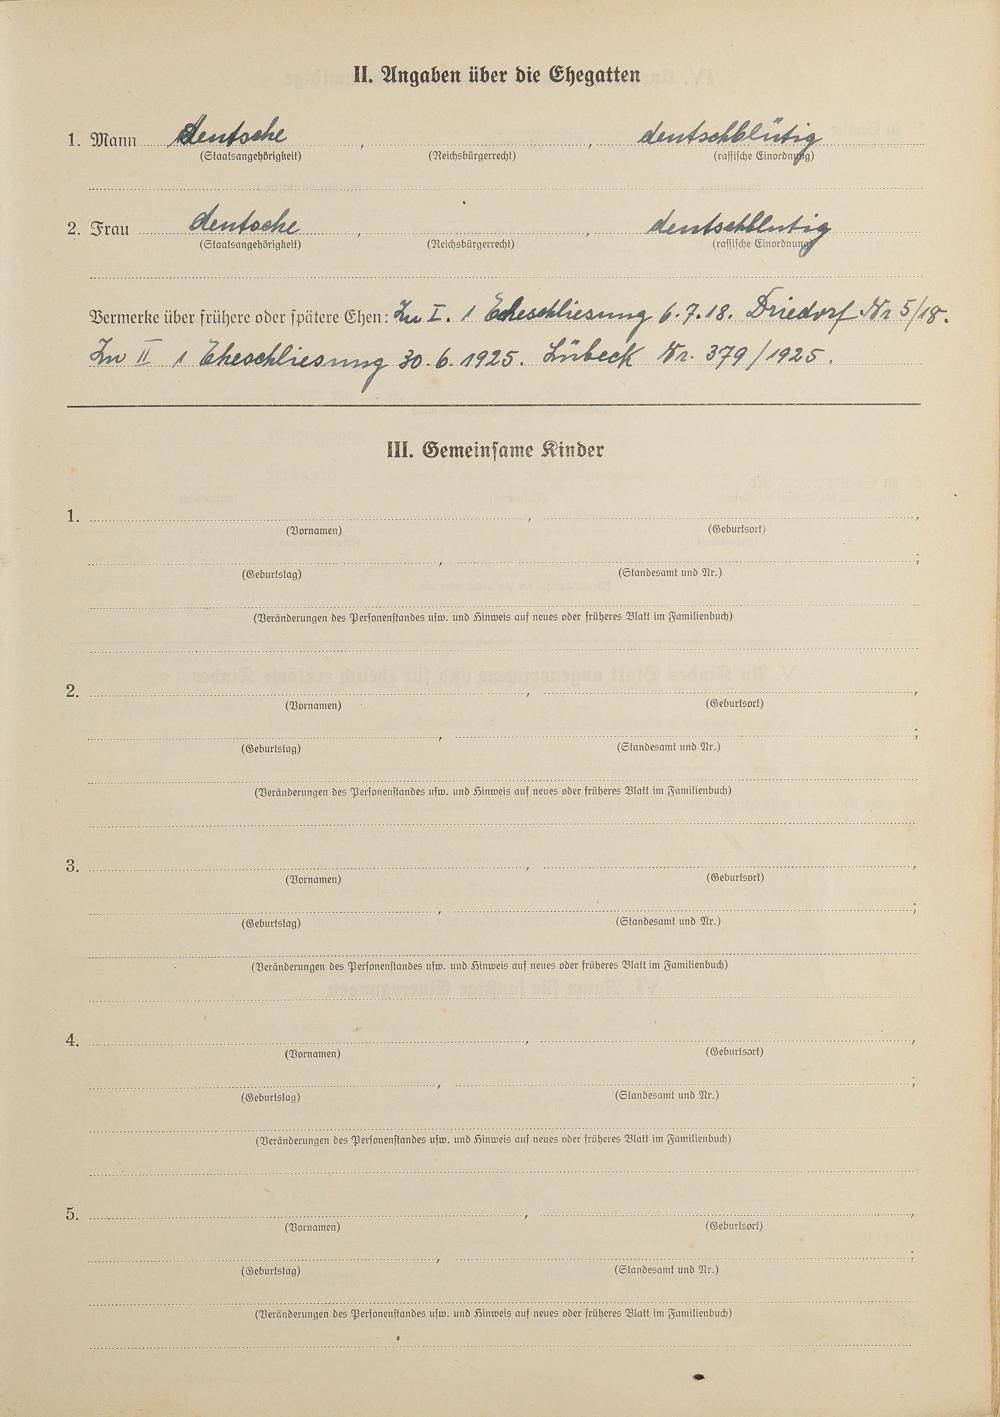 II. Angaben über die Ehegatten
1. Mann deutsche , , deutschblütig
(Staatsangehörigkeit) (Reichsbürgerrecht) (rassische Einordnung)
2. Frau deutsche , , deutschblutig
(Staatsangehörigkeit) (Reichsbürgerrecht) (rassische Einordnung)
Vermerke über frühere oder spätere Ehen: Zu I. 1 Eheschliesung 6.7.18. Driedorf Nr 5/18.
Zu II 1 Eheschliesung 30.6.1925. Lübeck Nr. 379/1925.
III. Gemeinsame Kinder
1. , ,
(Vornamen) (Geburtsort)
, ;
(Geburtstag) (Standesamt und Nr.)
(Veränderungen des Personenstandes usw. und Hinweis auf neues oder früheres Blatt im Familienbuch)
2. , ,
(Vornamen) (Geburtsort)
, ;
(Geburtstag) (Standesamt und Nr.)
(Veränderungen des Personenstandes usw. und Hinweis auf neues oder früheres Blatt im Familienbuch)
3. , ,
(Vornamen) (Geburtsort)
, ;
(Geburtstag) (Standesamt und Nr.)
(Veränderungen des Personenstandes usw. und Hinweis auf neues oder früheres Blatt im Familienbuch)
4. , ,
(Vornamen) (Geburtsort)
, ;
(Geburtstag) (Standesamt und Nr.)
(Veränderungen des Personenstandes usw. und Hinweis auf neues oder früheres Blatt im Familienbuch)
5. , ,
(Vornamen) (Geburtsort)
, ;
(Geburtstag) (Standesamt und Nr.)
(Veränderungen des Personenstandes usw. und Hinweis auf neues oder früheres Blatt im Familienbuch)